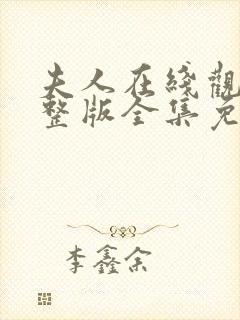 夫人在綫觀
整版全集免
李鑫余